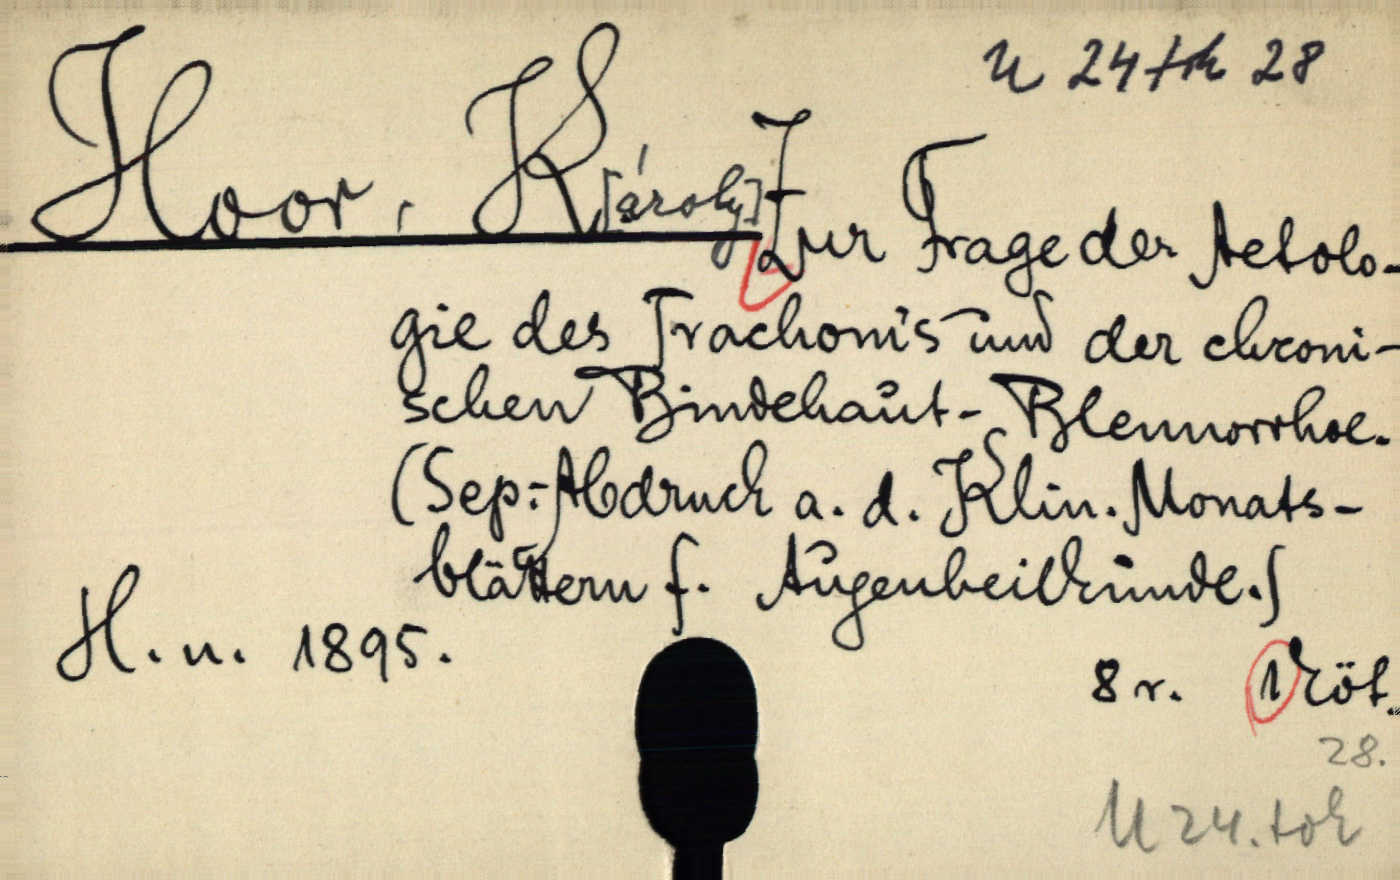 U 24 tok 28
Hoor, K[ároly] Zur Frage der Aetolo-
gie des Trachoms und der chroni-
schen Bindehaut-Blennorrhoe.
(Sep.-Abdruck a. d. Klin. Monats-
blättern f. Augenheilkunde.)
H. n. 1895.
8 r. 1 köt.
28.
U 24. tok